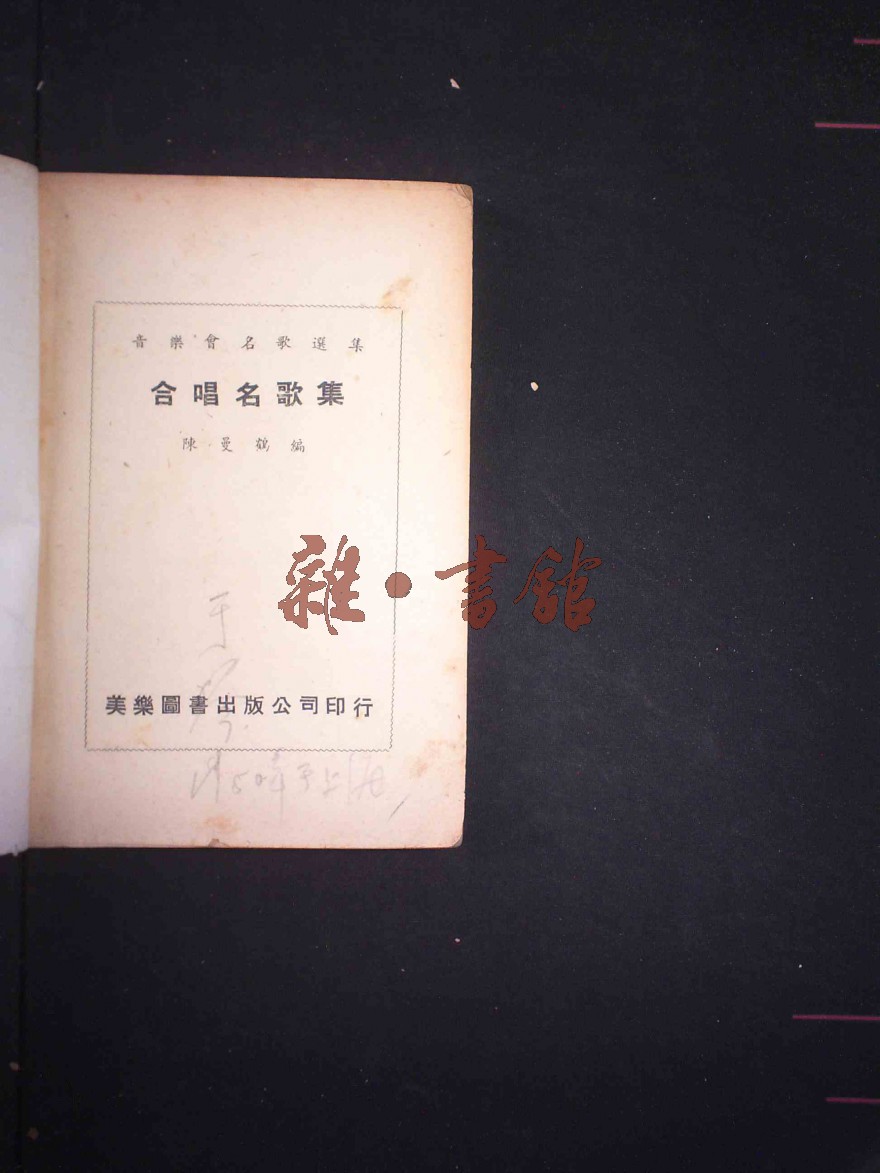 音樂會名歌選集
合唱名歌集
陳曼鶴編
雜·書館
美樂圖書出版公司印行